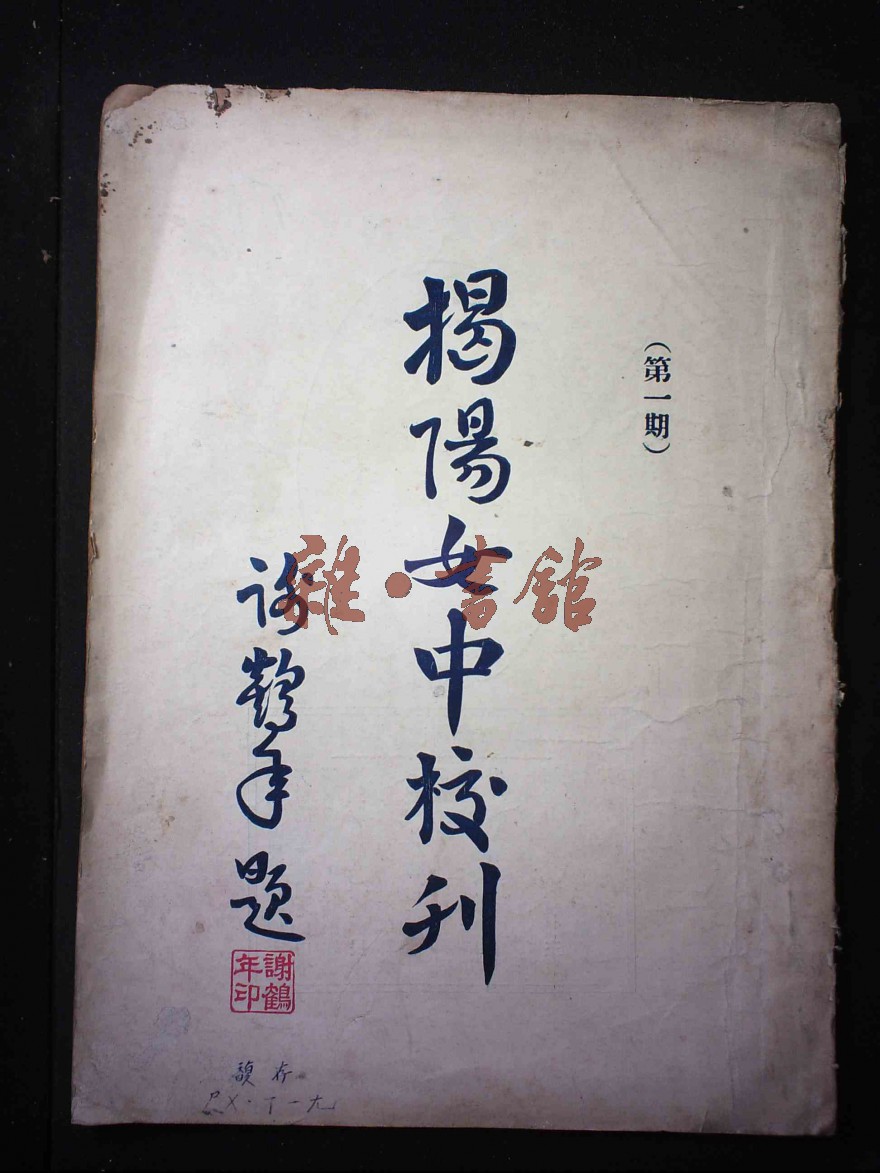 （第一期）
揭陽女中校刊
謝鶴年題
謝鶴年印
雜·書館